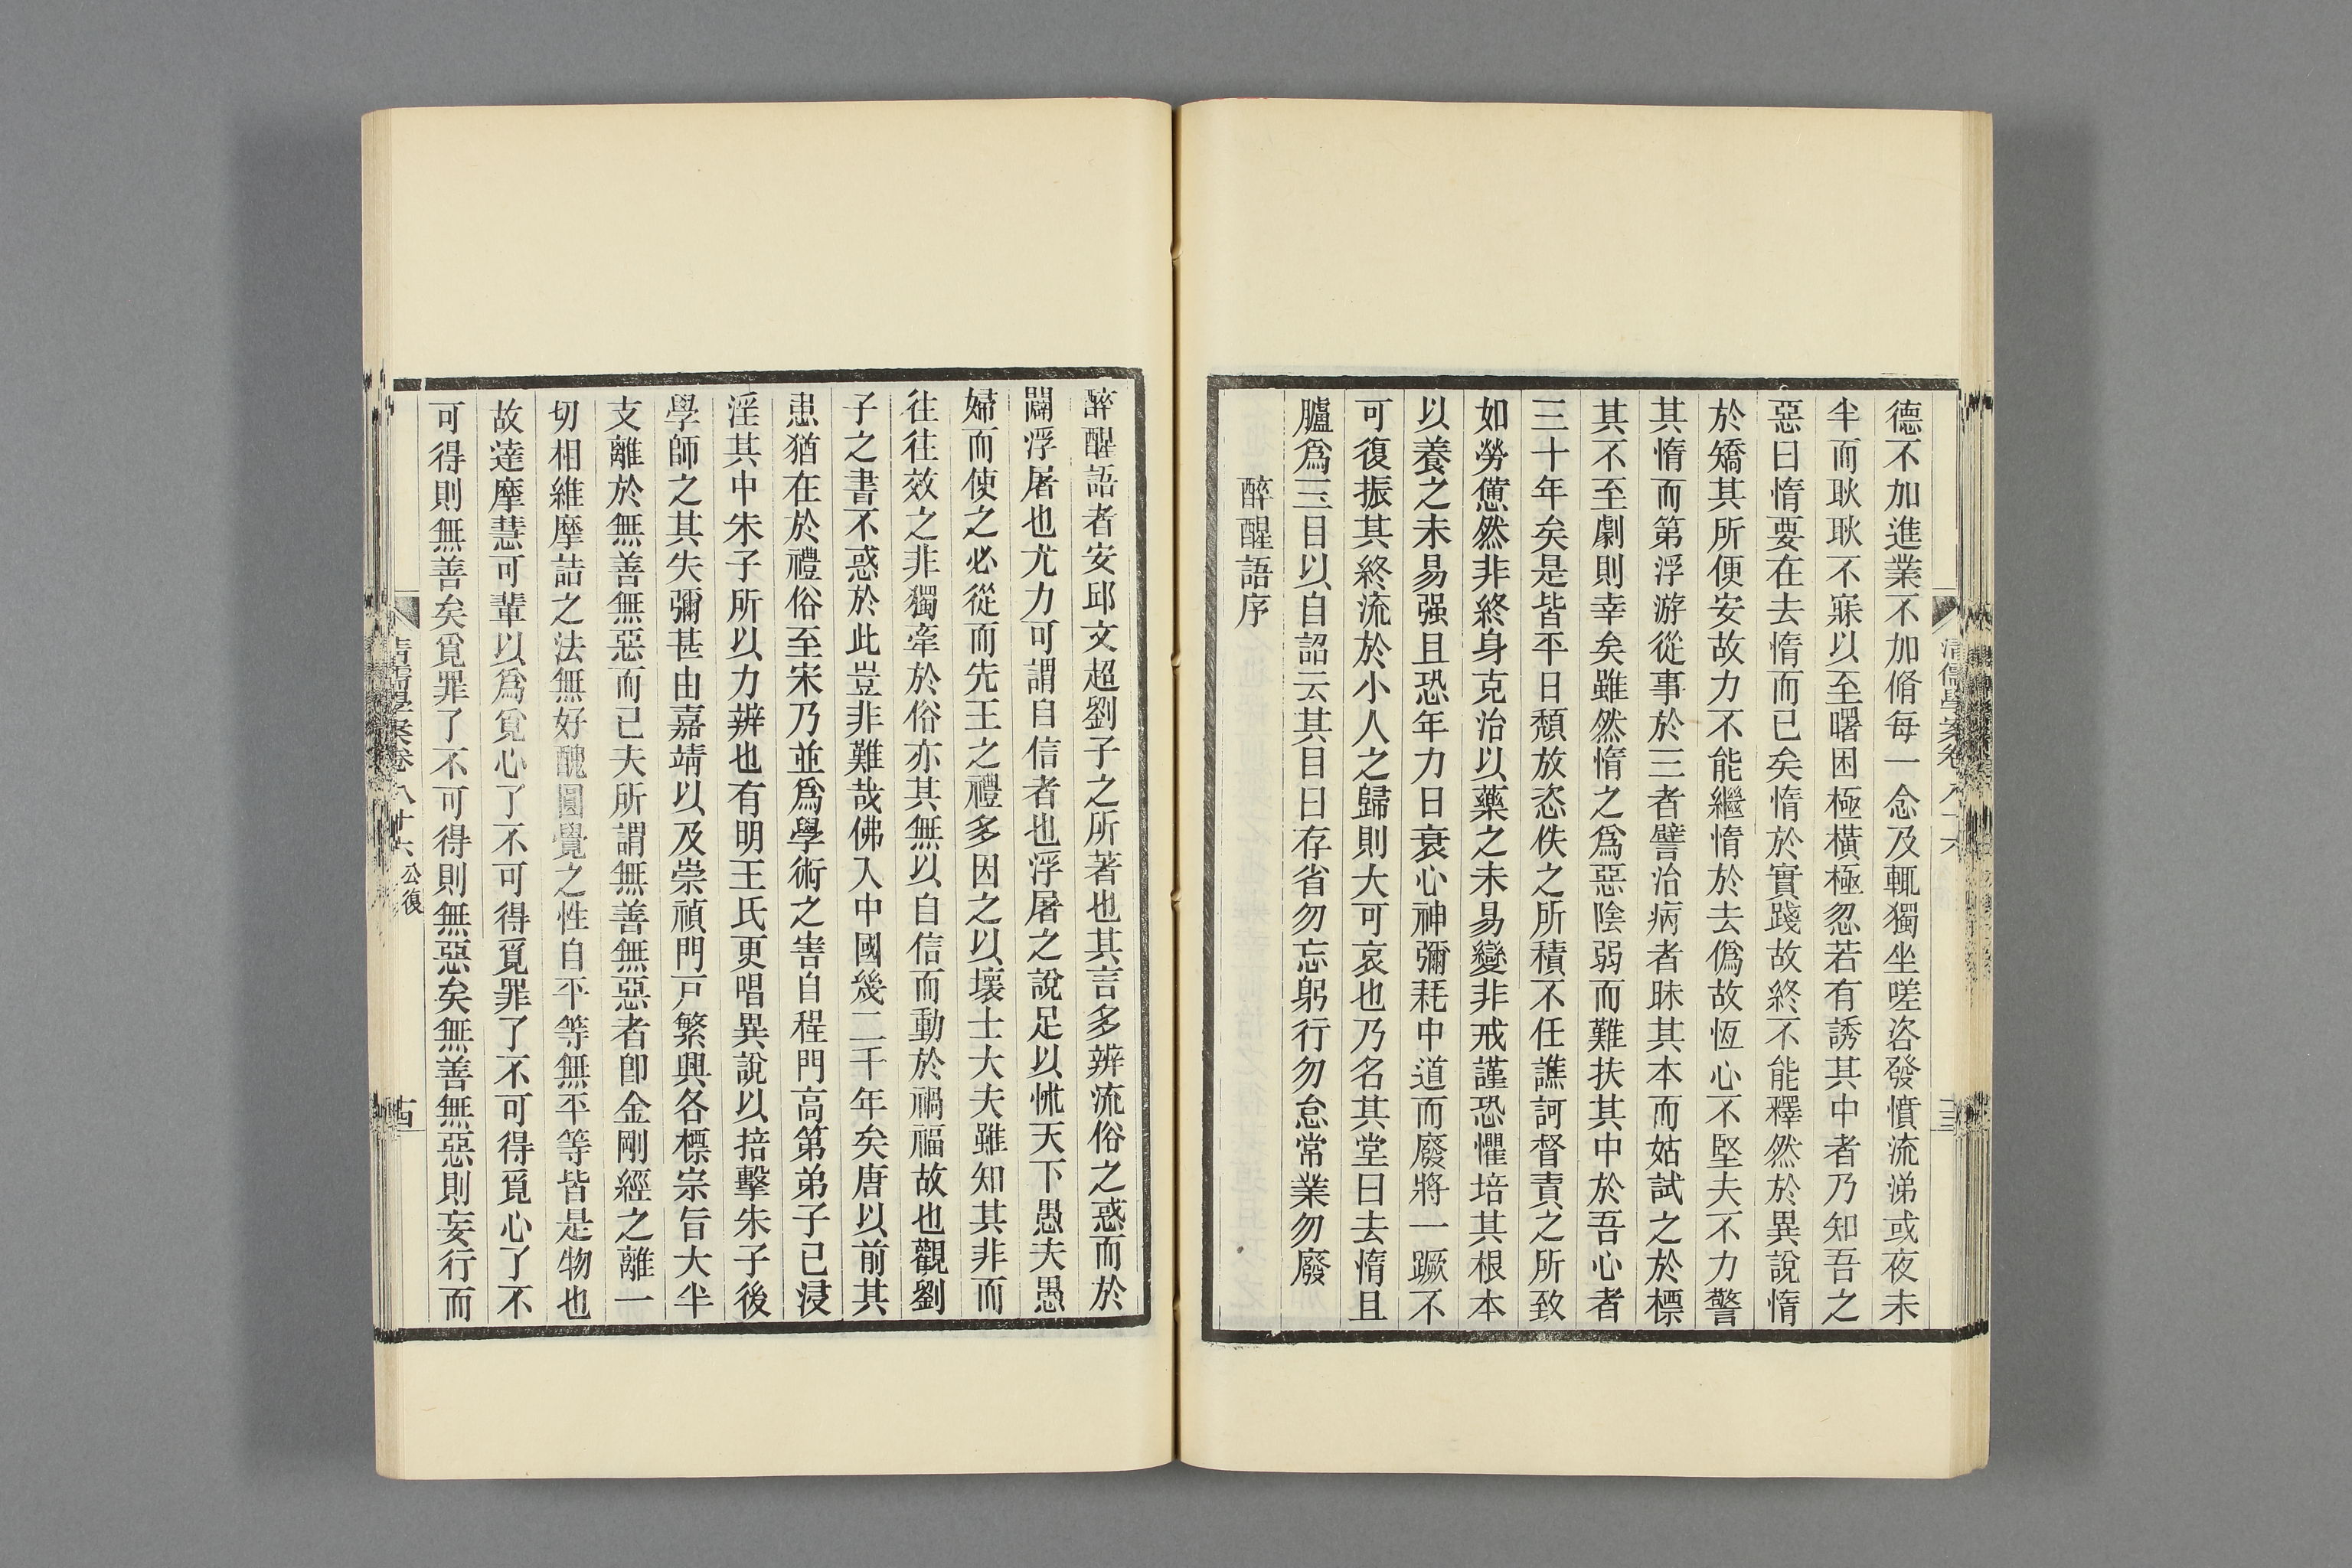 清儒學案卷八十六
十三
德不加進業不加脩每一念及輒獨坐嗟咨發憤流涕或夜未
半而耿耿不寐以至曙困極橫極忽若有誘其中者乃知吾之
惡曰惰要在去惰而已矣惰於實踐故終不能釋然於異說惰
於矯其所便安故力不能繼惰於去僞故恆心不堅夫不力警
其惰而第浮游從事於三者譬治病者昧其本而姑試之於標
其不至劇則幸矣雖然惰之爲惡陰弱而難扶其中於吾心者
三十年矣是皆平日頹放恣佚之所積不任譙訶督責之所致
如勞憊然非終身克治以藥之未易變非戒謹恐懼培其根本
以養之未易强且恐年力日衰心神彌耗中道而廢將一蹶不
可復振其終流於小人之歸則大可哀也乃名其堂曰去惰且
臚爲三目以自詔云其目曰存省勿忘躬行勿怠常業勿廢
醉醒語序
醉醒語者安邱文超劉子之所著也其言多辨流俗之惑而於
闢浮屠也尤力可謂自信者也浮屠之說足以怵天下愚夫愚
婦而使之必從而先王之禮多因之以壞士大夫雖知其非而
往往效之非獨牽於俗亦其無以自信而動於禍福故也觀劉
子之書不惑於此豈非難哉佛入中國幾二千年矣唐以前其
患猶在於禮俗至宋乃並爲學術之害自程門高第弟子已浸
淫其中朱子所以力辨也有明王氏更唱異說以掊擊朱子後
學師之其失彌甚由嘉靖以及崇禎門戸繁興各標宗旨大半
支離於無善無惡而已夫所謂無善無惡者卽金剛經之離一
切相維摩詰之法無好醜圓覺之性自平等無平等皆是物也
故達摩慧可輩以爲覓心了不可得覓罪了不可得覓心了不
可得則無善矣覓罪了不可得則無惡矣無善無惡則妄行而
清儒學案卷八十六 公復
十四